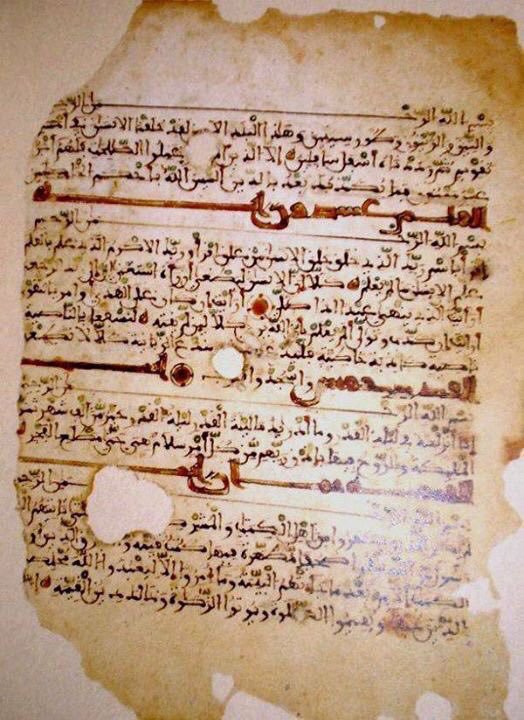 بسم الله الرحمن الرحيم
والتين والزيتون وطور سينين وهذا البلد الامين لقد خلقنا الانسن في احسن
تقويم ثم رددنه اسفل سافلين الا الذين ءام وعملوا الصلحت فلهم اجر
غير ممنون فما يكذبك بعد بالدين اليس الله باحكم الحكمين
عشرون
بسم الله الرحمن الرحيم
اقرا باسم ربك الذي خلق خلق الانسن من علق اقرا وربك الاكرم الذي علم بالقلم
علم الانسن ما لم يعلم كلا ان الانسن ليطغى ان راه استغنى ان الى ربك الرجعى
ارايت الذي ينهى عبدا اذا صلى ارايت ان كان على الهدى او امر بالتقوى
ارايت ان كذب وتولى الم يعلم بان الله يرى كلا لين لم ينته لنسفعا بالناصية
ناصية كذبة خاطية فليدع سندع الزبانية كلا لا تطعه
واسجد واقترب
بسم الله الرحمن الرحيم
انا انزلنه في ليلة القدر وما ادريك ما ليلة القدر ليلة القدر خير من الف شهر تنزل
المليكة والروح فيها باذن ربهم من كل امر سلام هي حتى مطلع الفجر
الرحيم
كفروا من اهل الكتب والمشركين تاتيهم
صحفا مطهرة فيها كتب قيمة الذين اوتوا
الكتب بعد ما جاتهم البينة وما امروا الا ليعبدوا الله مخلصين
الدين ويقيموا الصلوة ويوتوا الزكوة وذلك دين القيمة